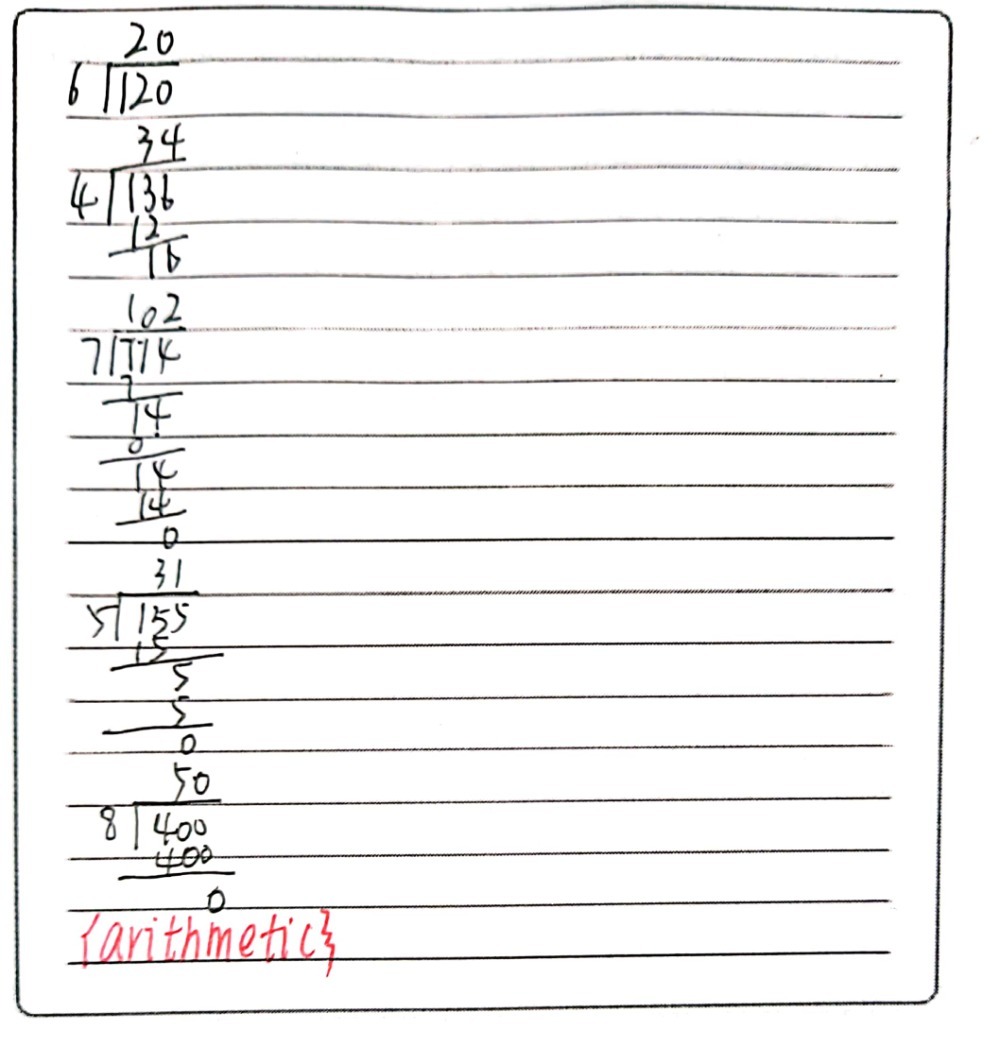 20
6 120
34
4 136
12
16
102
7 714
7
14
0
14
14
0
31
5 155
15
5
5
0
50
8 400
400
0
{arithmetic}